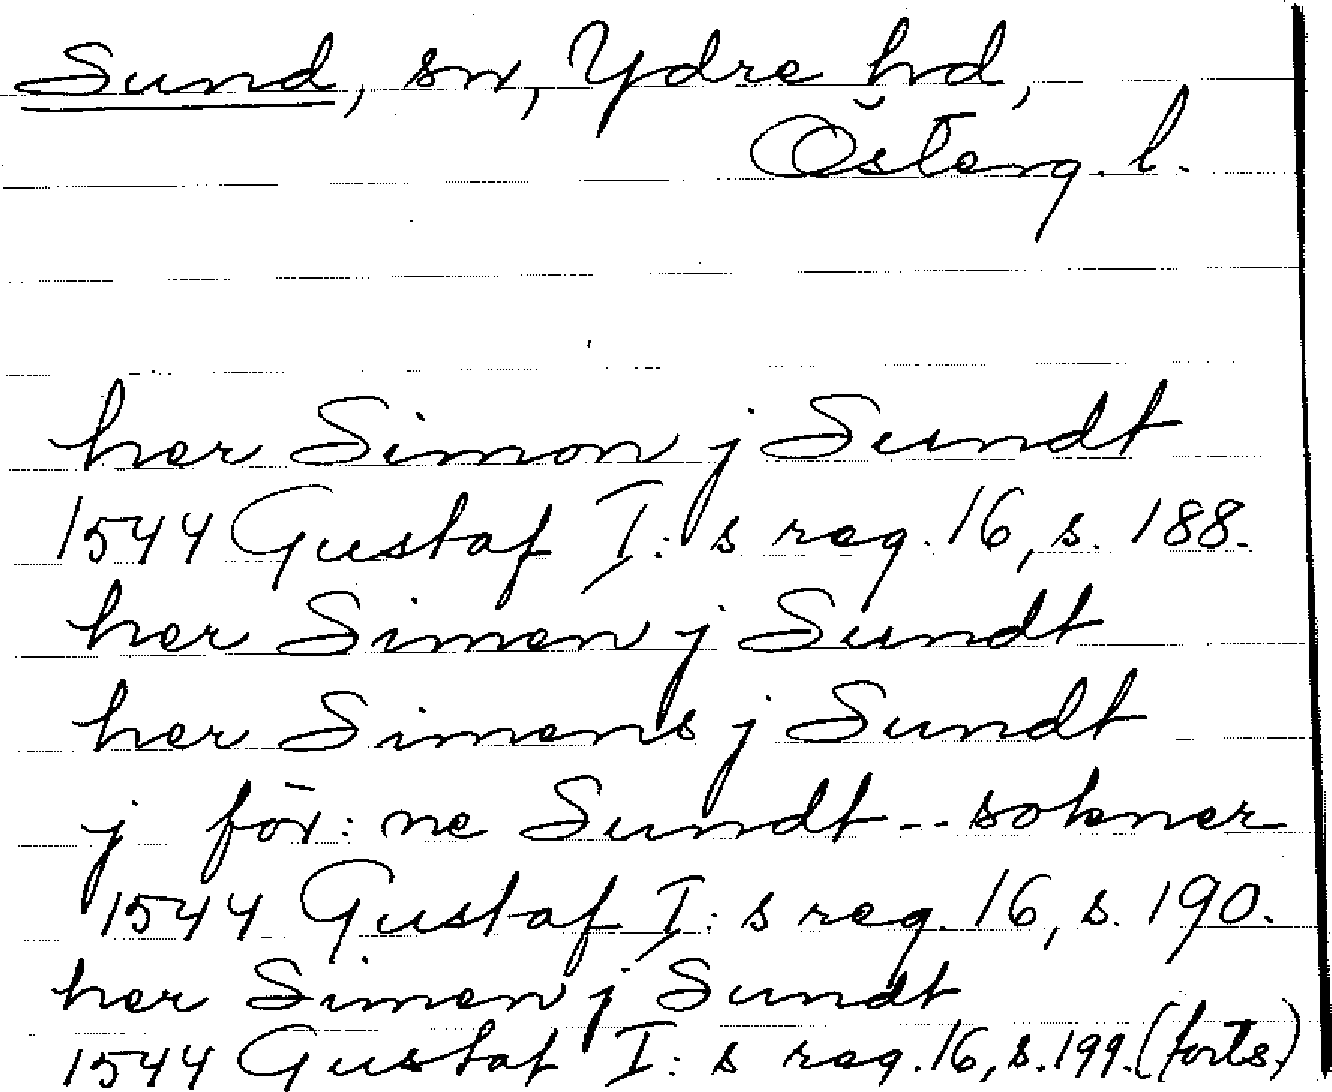 Sund, sn, Ydre hd,
Österg. l.
her Simon j Sundt
1544 Gustaf I:s reg. 16, s. 188.
her Simen j Sundt
her Simens j Sundt
j för:ne Sundt -- sokner
1544 Gustaf I:s reg. 16, s. 190.
her Simen j Sundt
1544 Gustaf I:s reg. 16, s. 199. (forts.)